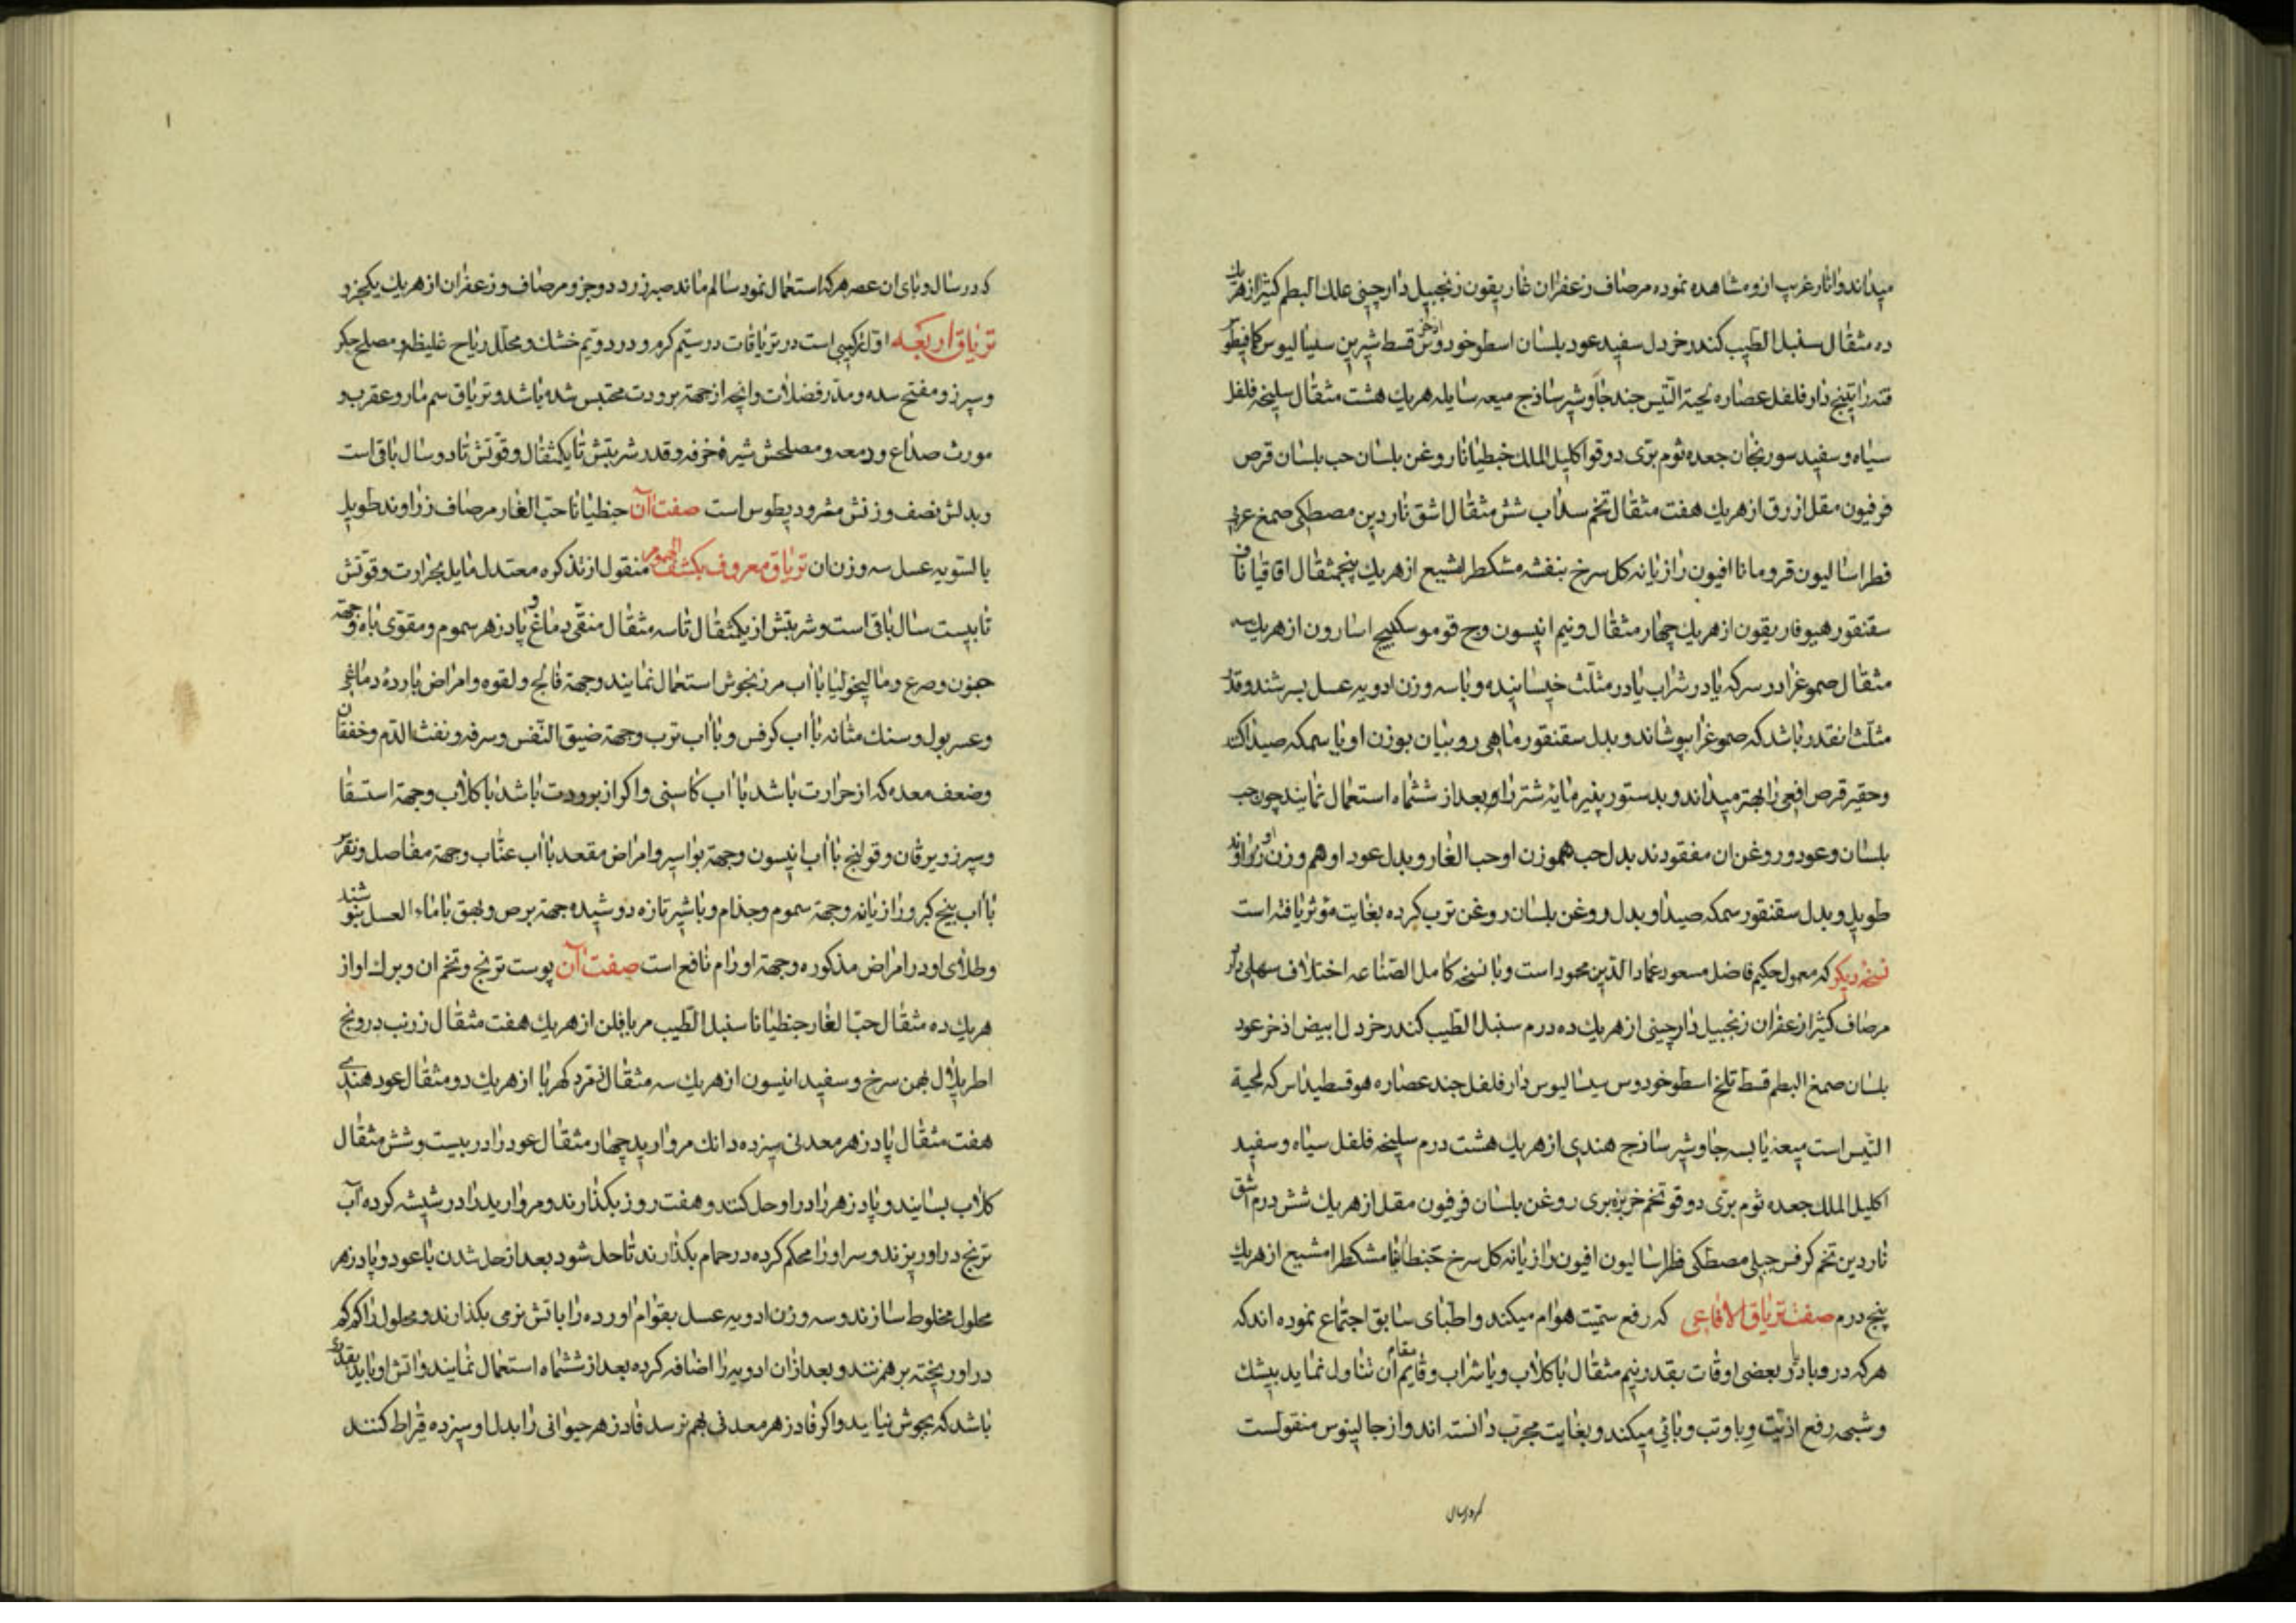 میداند و اثار غریب ازو مشاهده نموده مرصاف زعفران غاریقون زنجبیل دارچینی علك البطم کتیرا از هر یك
ده مثقال سنبل الطیب کندر خردل سفید عود بلسان اسطوخودوس اذخر قسط شیرین سیسالیوس کمافیطوس
قنه راتینج دارفلفل عصاره لحیة التیس جند جاوشیر ساذج میعه سایله هریك هشت مثقال سلیخه فلفل
سیاه و سفید سورنجان جعده ثوم بری دوقو اکلیل الملك جنطیانا روغن بلسان حب بلسان قرص
فرفیون مقل ازرق از هریك هفت مثقال تخم سداب شش مثقال اشق ناردین مصطکی صمغ عربی
فطراسالیون قردمانا افیون رازیانه کل سرخ بنفشه مشکطرامشیع از هریك پنجمثقال اقاقیا
سقنقور هیوفاریقون از هریك چهار مثقال و نیم انیسون وج فو مو سکبینج اسارون از هریك سه
مثقال صموغ را در سرکه یا در شراب یا در مثلث خیسانیده و با سه وزن ادویه عسل بسرشند و قدر
مثلث انقدر باشد که صموغ را بپوشاند و بدل سقنقور ماهی روبیان بوزن او یا سمکه صیدا
وحقیر قرص افعی را بهتر میداند و بدستور پنیر مایهٔ شتر را و بعد از ششماه استعمال نمایند چون حب
بلسان و عود و روغن ان مفقودند بدل حب هموزن او حب الغار و بدل عود او هم وزن او زراوند
طویل و بدل سقنقور سمکه صیدا و بدل روغن بلسان روغن ترب کرده بغایت مؤثر یافته است
نسخهٔ دیکر که معمول حکیم فاضل مسعود عماد الدین محمود است و با نسخه کامل الصناعه اختلاف سهلی دارد
مرصاف کثیرا زعفران زنجبیل دارچینی از هریك ده درم سنبل الطیب کندر خردل ابیض اذخر عود
بلسان صمغ البطم قسط تلخ اسطوخودوس سیسالیوس دارفلفل جند عصاره هوقسطیداس که لحیة
التیس است میعهٔ یابسه جاوشیر ساذج هندی از هریك هشت درم سلیخه فلفل سیاه و سفید
اکلیل الملك جعده ثوم بری دوقو تخم خربزه بری روغن بلسان فرفیون مقل از هریك شش درم اشق
ناردین تخم کرفس جبلی مصطکی فطراسالیون افیون رازیانه کل سرخ جنطیانا مشکطرامشیع از هریك
پنج درم صفت تریاق الافاعی که رفع سمیت هوام میکند و اطبای سابق اجتماع نموده اند که
هرکه در وبا و در بعضی اوقات بقدر نیم مثقال با کلاب و یا شراب و قایم مقام آن تناول نماید بیشك
و شبهه رفع اذیت وبا و تب وبائی میکند و بغایت مجرب دانسته اند و از جالینوس منقولست
که در سال وبای ان عصر هرکه استعمال نمود سالم ماند صبر زرد دو جزو مرصاف و زعفران از هریك یکجزو
تریاق اربعه اول ترکیبی است در تریاقات در سیم کرم و در دویم خشك و محلل ریاح غلیظه و مصلح جکر
و سپرز و مفتح سده و مدر فضلات و انچه از جهة برودت محتبس شده باشد و تریاق سم مار و عقرب و
مورث صداع و دمعه و مصلحش شیرهٔ خرفه و قدر شربتش تا یکمثقال و قوتش تا دو سال باقی است
و بدلش نصف وزنش مثرودیطوس است صفت آن جنطیانا حب الغار مرصاف زراوند طویل
بالسویه عسل سه وزن ان تریاق معروف بکشف الهموم منقول از تذکره معتدل مایل بحرارت و قوتش
تا بیست سال باقی است و شربتش از یکمثقال تا سه مثقال منقی دماغ و پادزهر سموم و مقوی باه و جهة
جنون و صرع و مالیخولیا با اب مرزنجوش استعمال نمایند و جهة فالج و لقوه و امراض باردهٔ دماغی
و عسر بول و سنك مثانه با اب کرفس و با اب ترب و جهة ضیق النفس و سرفه و نفث الدم و خفقان
و ضعف معده که از حرارت باشد با اب کاسنی و اکر از برودت باشد با کلاب و جهة استسقا
و سپرز و یرقان و قولنج با اب انیسون و جهة بواسیر و امراض مقعد با اب عناب و جهة مفاصل و نقرس
با اب بیخ کبر و رازیانه و جهة سموم و جذام و با شیر تازه دوشیده جهة برص و بهق با ماء العسل بنوشند
و طلای او در امراض مذکوره و جهة اورام نافع است صفت آن پوست ترنج و تخم ان و برك او از
هریك ده مثقال حب الغار جنطیانا سنبل الطیب مر بافلن از هریك هفت مثقال زرنب درونج
اطریلال بهمن سرخ و سفید انیسون از هریك سه مثقال کهربا از هریك دو مثقال عود هندی
هفت مثقال پادزهر معدنی سیزده دانك مروارید چهار مثقال عود را در بیست و شش مثقال
کلاب بسایند و پادزهر را در او حل کنند و هفت روز بکذارند و مروارید را در شیشه کرده آب
ترنج در او ریزند و سر او را محکم کرده در حمام بکذارند تا حل شود بعد از حل شدن با عود و پادزهر
محلول مخلوط سازند و سه وزن ادویه عسل بقوام اورده را باتش نرمی بکذارند و محلول را کم کم
در او ریخته برهم زنند و بعد از ان ادویه را اضافه کرده بعد از ششماه استعمال نمایند و اتش او باید بقدری
باشد که بجوش نیاید و اکر فادزهر معدنی بهم نرسد فادزهر حیوانی را بدل او سیزده قیراط کنند
که در سال